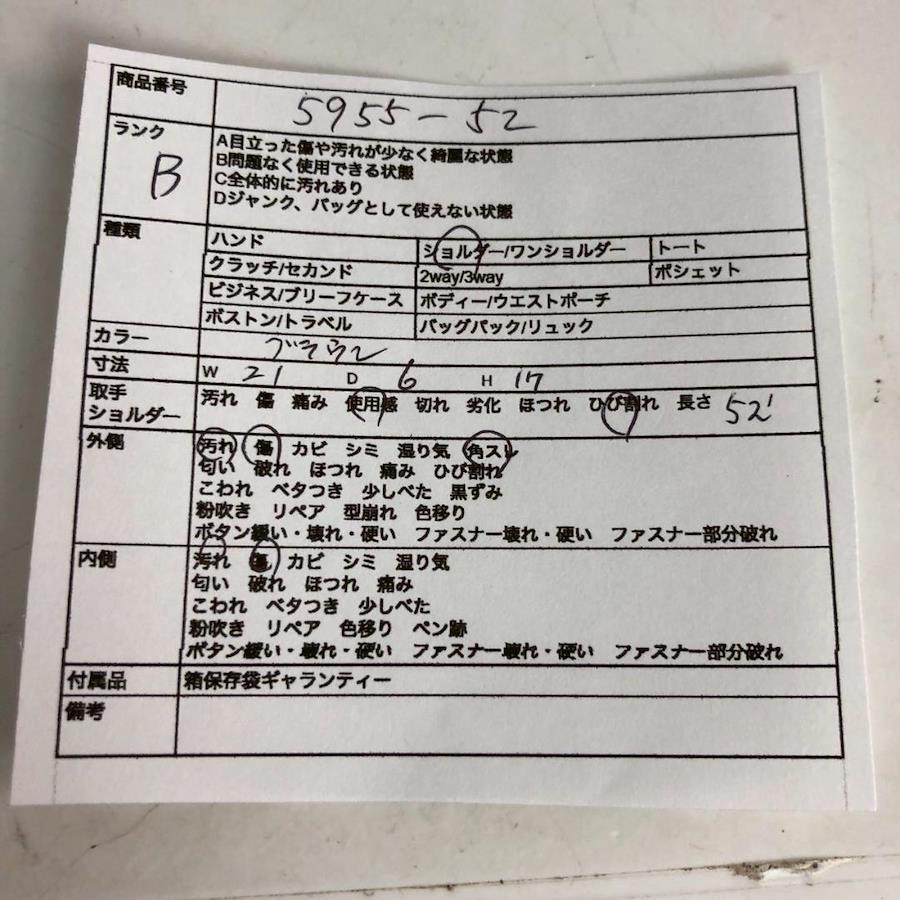 商品番号 5955-52
ランク B
A目立った傷や汚れが少なく綺麗な状態
B問題なく使用できる状態
C全体的に汚れあり
Dジャンク、バッグとして使えない状態
種類 ハンド ショルダー/ワンショルダー トート
クラッチ/セカンド 2way/3way ポシェット
ビジネス/ブリーフケース ボディー/ウエストポーチ
ボストン/トラベル バッグパック/リュック
カラー ブラウン
寸法 W 21 D 6 H 17
取手 汚れ 傷 痛み 使用感 切れ 劣化 ほつれ ひび割れ 長さ 52
ショルダー
外側 汚れ 傷 カビ シミ 湿り気 角スレ
匂い 破れ ほつれ 痛み ひび割れ
こわれ ベタつき 少しべた 黒ずみ
粉吹き リペア 型崩れ 色移り
ボタン緩い・壊れ・硬い ファスナー壊れ・硬い ファスナー部分破れ
内側 汚れ 傷 カビ シミ 湿り気
匂い 破れ ほつれ 痛み
こわれ ベタつき 少しべた
粉吹き リペア 色移り ペン跡
ボタン緩い・壊れ・硬い ファスナー壊れ・硬い ファスナー部分破れ
付属品 箱保存袋ギャランティー
備考